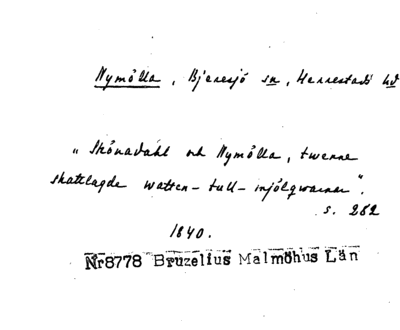 Nymölla, Bjeresjö sn, Herrestads hd
"Skönadahl och Nymölla, twenne
skattlagde watten-tull-mjölqwarnar".
s. 282
1840.
Nr8778 Bruzelius Malmöhus Län